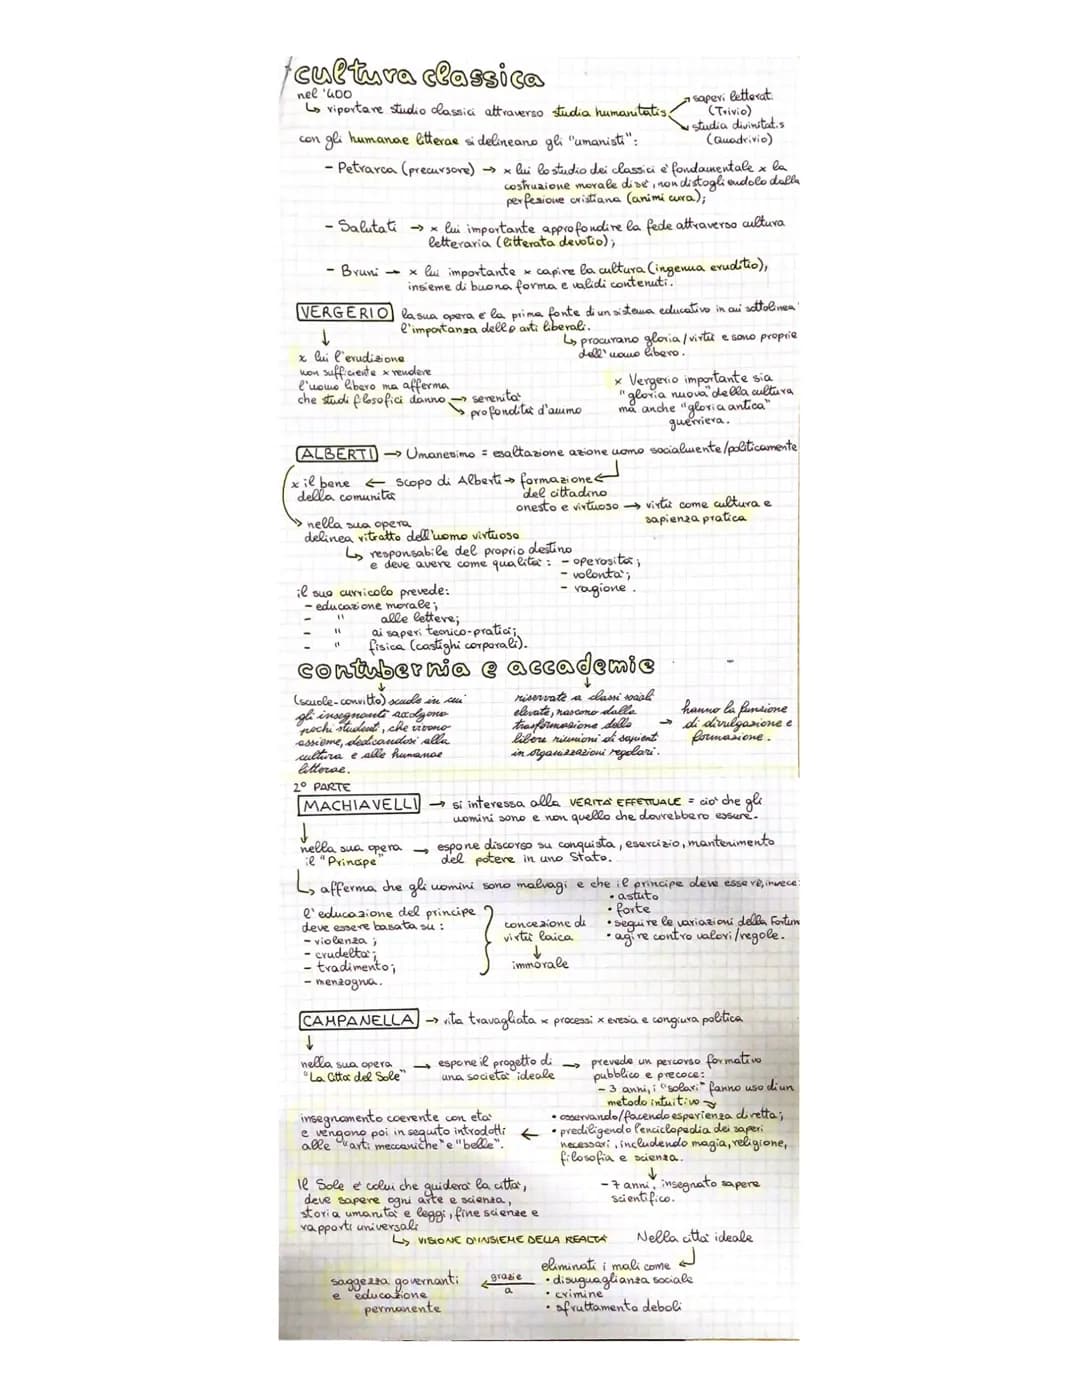 cultura classica
nel '400
↳ riportare studio classici attraverso studia humanitatis
saperi letterat.
(Trivio)
studia divinitat.s
(Quadrivio)
con gli humanae litterae si delineano gli "umanisti":
- Petrarca (precursore) → x lui lo studio dei classici è fondamentale x la
costruzione morale di sé, non distogliendolo dalla
perfezione cristiana (animi cura);
- Salutati → x lui importante approfondire la fede attraverso cultura
letteraria (litterata devotio);
- Bruni → x lui importante x capire la cultura (ingenua eruditio),
insieme di buona forma e validi contenuti.
VERGERIO la sua opera è la prima fonte di un sistema educativo in cui sottolinea
l'importanza delle arti liberali.
↳ procurano gloria/virtù e sono proprie
dell'uomo libero.
x lui l'erudizione
non sufficiente x rendere
l'uomo libero ma afferma
che studi filosofici danno → serenità
→ profondità d'animo
x Vergerio importante sia
"gloria nuova" della cultura
ma anche "gloria antica"
guerriera.
ALBERTI → Umanesimo = esaltazione azione uomo socialmente/politicamente
x il bene ← scopo di Alberti → formazione
della comunità
del cittadino
onesto e virtuoso → virtù come cultura e
sapienza pratica
nella sua opera
delinea ritratto dell'uomo virtuoso
↳ responsabile del proprio destino
e deve avere come qualità: - operosità;
- volontà;
- ragione.
il suo curricolo prevede:
- educazione morale;
- " alle lettere;
- " ai saperi tecnico-pratici;
- " fisica (castighi corporali).
contubernia e accademie
(scuole-convitto) scuole in cui
gli insegnanti accolgono
pochi studenti, che vivono
assieme, dedicandosi alla
cultura e alle humanae
litterae.
riservate a classi sociali
elevate, nascono dalla
trasformazione delle
libere riunioni di sapienti
in organizzazioni regolari.
→ hanno la funzione
di divulgazione e
formazione.
2° PARTE
MACHIAVELLI → si interessa alla VERITÀ EFFETTUALE = ciò che gli
uomini sono e non quello che dovrebbero essere.
nella sua opera → espone discorso su conquista, esercizio, mantenimento
il "Principe" del potere in uno Stato.
↳ afferma che gli uomini sono malvagi e che il principe deve essere, invece:
• astuto
• forte
• seguire le variazioni della Fortun
• agire contro valori/regole.
l'educazione del principe
deve essere basata su:
- violenza;
- crudeltà;
- tradimento;
- menzogna.
concezione di
virtù laica
↓
immorale
CAMPANELLA → vita travagliata x processi x eresia e congiura politica
nella sua opera → espone il progetto di → prevede un percorso formativo
"La Città del Sole" una società ideale pubblico e precoce:
- 3 anni, i "solari" fanno uso di un
metodo intuitivo
• osservando/facendo esperienza diretta;
• prediligendo l'enciclopedia dei saperi
necessari, includendo magia, religione,
filosofia e scienza.
insegnamento coerente con età
e vengono poi in seguito introdotti ←
alle "arti meccaniche" e "belle".
- 7 anni, insegnato sapere
scientifico.
Il Sole è colui che guiderà la città,
deve sapere ogni arte e scienza,
storia umanità e leggi, fine scienze e
rapporti universali
↳ VISIONE D'INSIEME DELLA REALTÀ
Nella città ideale
eliminati i mali come
• disuguaglianza sociale
• crimine
• sfruttamento deboli
grazie
a
saggezza governanti
e educazione
permanente